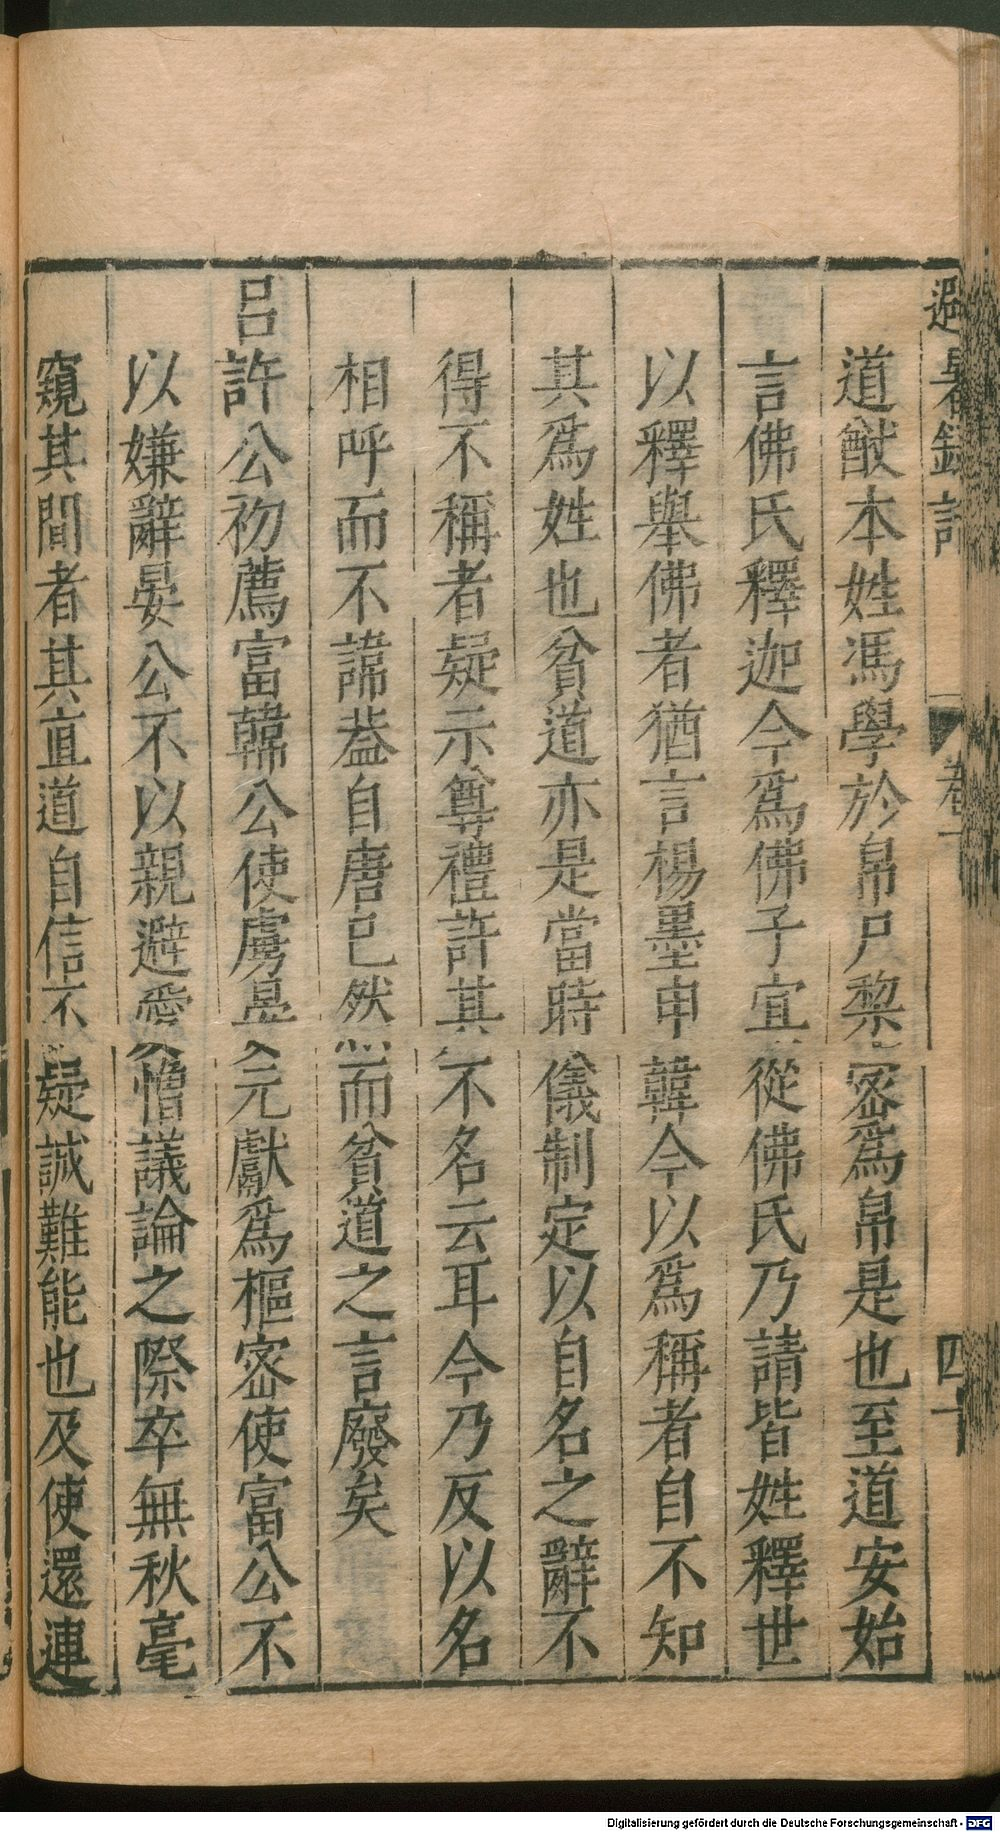 避暑錄話
卷下
四十
道猷本姓馮學於帛尸黎密爲帛是也至道安始
言佛氏釋迦今爲佛子宜從佛氏乃請皆姓釋世
以釋舉佛者猶言楊墨申韓今以爲稱者自不知
其爲姓也貧道亦是當時儀制定以自名之辭不
得不稱者疑示尊禮許其不名云耳今乃反以名
相呼而不諱葢自唐已然而貧道之言廢矣
呂許公初薦富韓公使虜晏元獻爲樞密使富公不
以嫌辭晏公不以親避愛憎議論之際卒無秋毫
窺其間者其直道自信不疑誠難能也及使還連
Digitalisierung gefördert durch die Deutsche Forschungsgemeinschaft - DFG